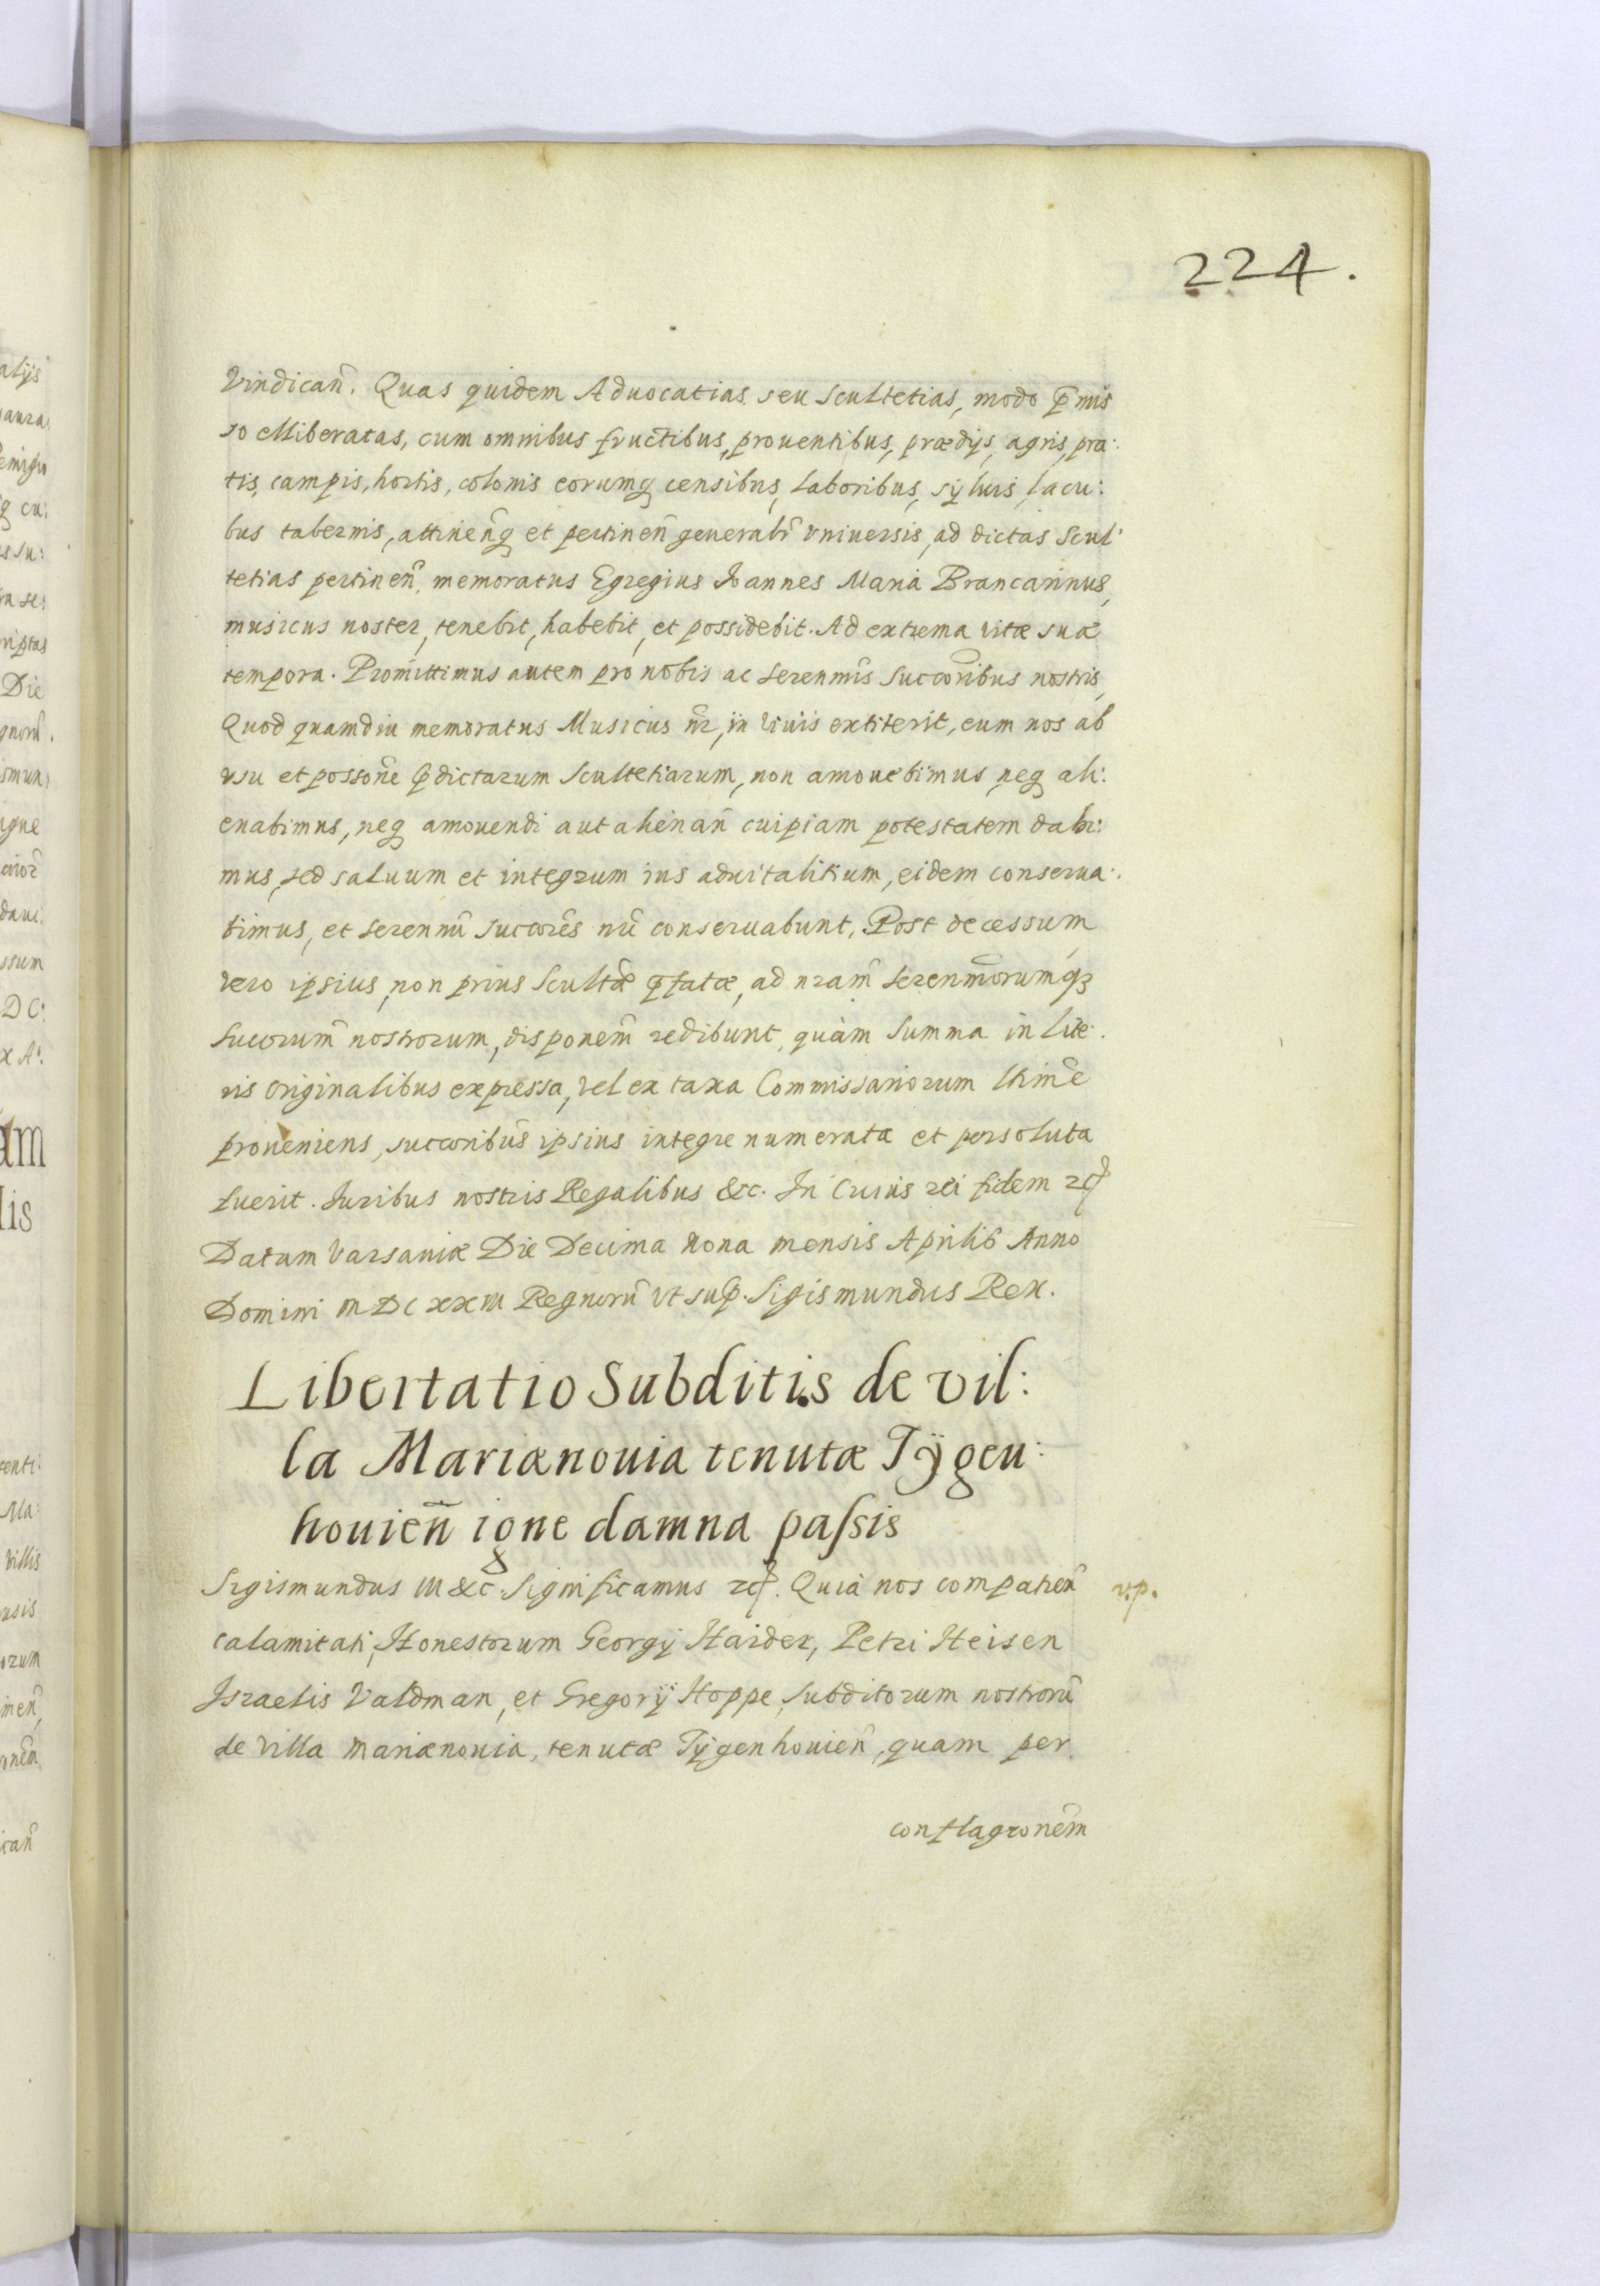 224.
Vindicañ. Quas quidem Aduocatias seu Scultetias, modo p̃mis
so elliberatas, cum omnibus fructibus, prouentibus, prædijs, agris, pra:
tis, campis, hortis, colonis eorumq censibus, laboribus, sÿluis, lacu:
bus tabernis, attineñq et pertineñ generalr̃ vniuersis, ad dictas Scul:
tetias pertineñ, memoratus Egregius Joannes Maria Brancarinus,
musicus noster, tenebit, habebit, et possidebit. Ad extrema vitæ suæ
tempora. Promittimus autem pro nobis ac Serenmis̃ Succoribus̃ nostris,
Quod quamdiu memoratus Musicus nr̃, in viuis extiterit, eum nos ab
vsu et possone̅ p̃dictarum Scultetiarum, non amouebimus, neq ali:
enabimus, neq amouendi aut alienañ cuipiam potestatem dabi:
mus, sed saluum et integrum ius aduitalitium, eidem conserua:
bimus, et Serenmi̅ Succores̃ nr̃i conseruabunt. Post decessum
vero ipsius, non prius Scultæ̃ p̃fatæ, ad nram̃ Serenmorum̃q3
Succorum̃ nostrorum, disponem̃ redibunt, quàm Summa in Lite:
ris originalibus expressa, vel ex taxa Commissariorum ltime̅
proueniens, succoribus̃ ipsius integre numerata et persoluta
fuerit. Juribus nostris Regalibus &c. In Cuius rei fidem &c
Datum Varsauiæ Die Decima Nona mensis Aprilis Anno
Domini MDCXXIII Regnorũ vt sup̃. Sigismundus Rex.
Libertatio Subditis de vil:
la Mariænouia tenutæ Tÿgen:
houieñ igne damna passis
Sigismundus III &c. Significamus &c. Quia nos compatieñ v.p.
calamitati, Honestorum Georgij Haider, Petri Heisen
Israelis Valdman, et Gregorij Hoppe, Subditorum nostrorũ
de Villa Mariænouia, tenutæ Tÿgenhouieñ, quam per
conflagronem̃